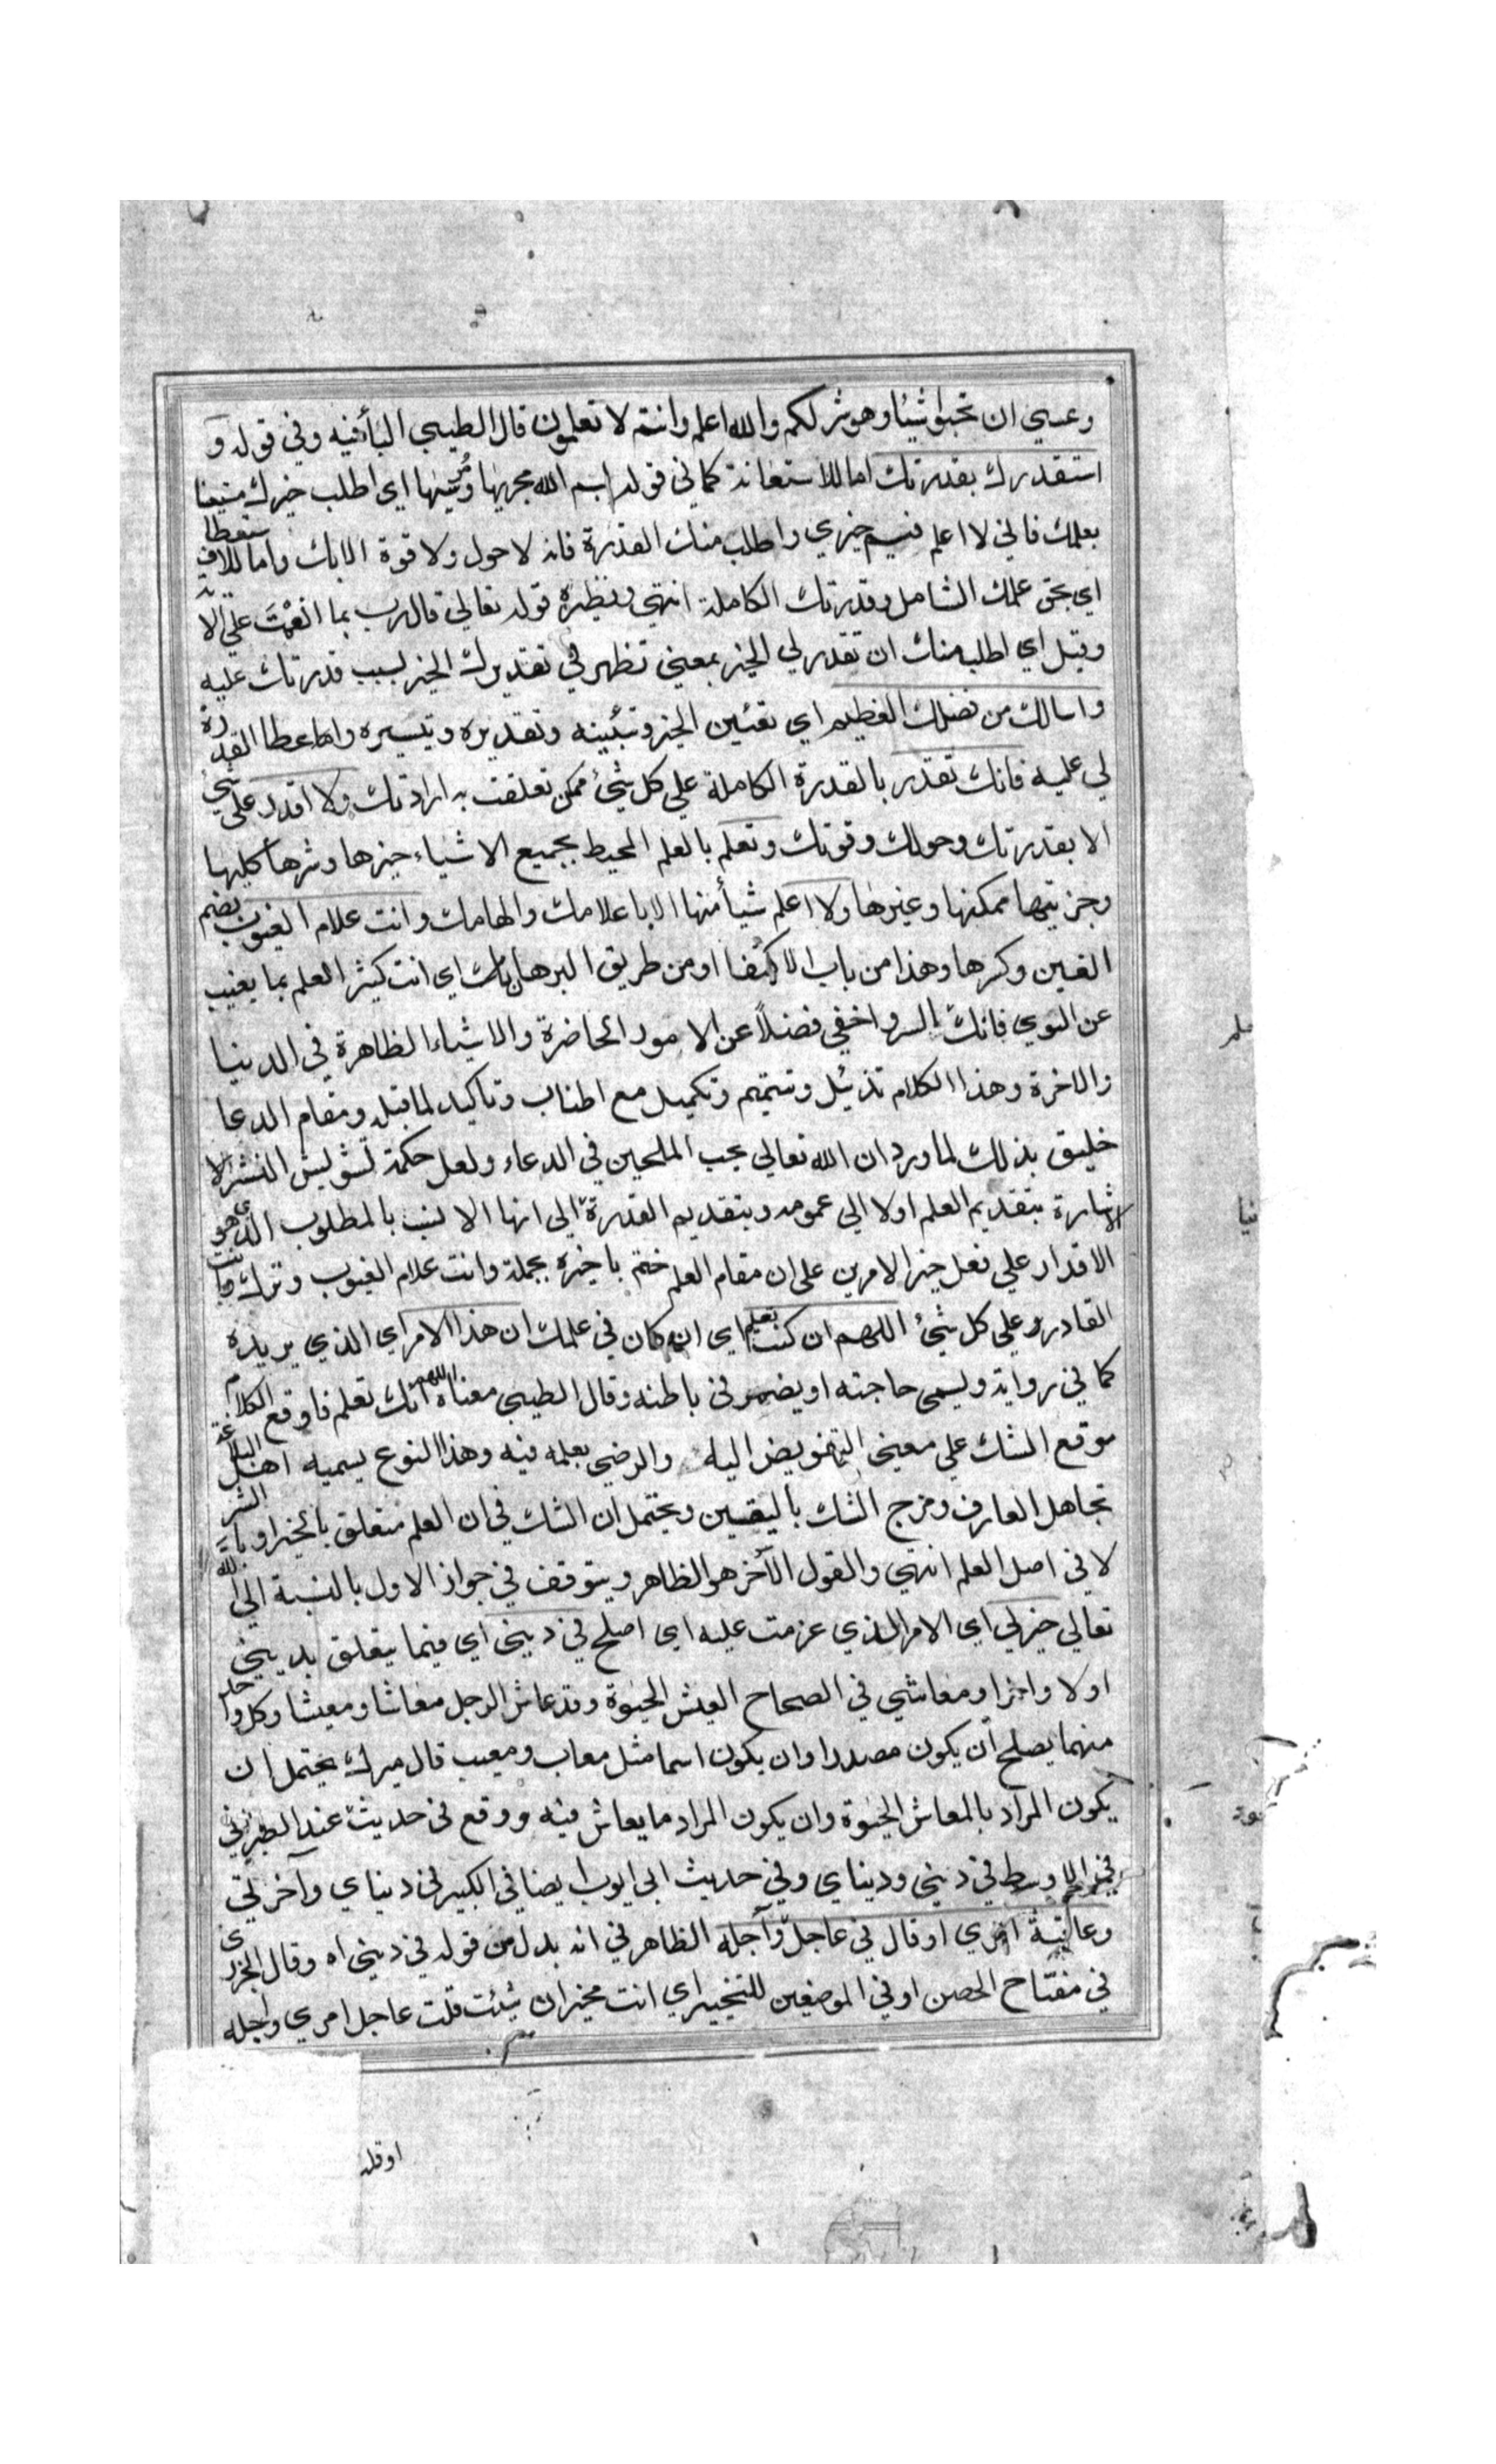 وعسي ان تحبوا شيئا وهو شر لكم والله اعلم وانتم لا تعلمون قال الطيبي البأ فيه وفي قوله و
استقدرك بقدرتك اما للاستعانة كما في قوله بسم الله مجريها ومرسيها اي اطلب خيرك مستعينا
بعلمك فاني لا اعلم فيم خيري واطلب منك القدرة فانه لا حول ولا قوة الا بك واما للاستعطاف
اي بحق علمك الشامل وقدرتك الكاملة انتهي ونظيره قوله تعالي قال رب بما انعمت علي الاية
وقيل اي اطلب منك ان تقدر لي الخير بمعني تظهر في تقديرك الخير بسبب قدرتك عليه
واسالك من فضلك العظيم اي تعيين الخير وتبيينه وتقديره وتيسيره واعطا القدرة
لي عليه فانك تقدر بالقدرة الكاملة علي كل شيء ممكن تعلقت به ارادتك ولا اقدر علي شيء
الا بقدرتك وحولك وقوتك وتعلم بالعلم المحيط بجميع الاشياء خيرها وشرها كليها
وجزئيها ممكنها وغيرها ولا اعلم شيأ منها الا باعلامك والهامك وانت علام الغيوب بضم
الغين وكسرها وهذا من باب الاكتفا او من طريق البرهان اي انت كثير العلم بما يغيب
عن السوي فانك السر واخفي فضلاً عن الامور الحاضرة والاشياء الظاهرة في الدنيا
والاخرة وهذا الكلام تذييل وتتميم وتكميل مع اطناب وتاكيد لما قبله ومقام الدعا
خليق بذلك لما ورد ان الله تعالي يحب الملحين في الدعاء ولعل حكمة تشويش النشر الا
شارة بتقديم العلم اولا الي عمومه وبتقديم القدرة الي انها الانسب بالمطلوب الذي هو
الاقدار علي فعل خير الامرين علي ان مقام العلم ختم باخيره بجملة وانت علام الغيوب وترك وانت
القادر علي كل شيء اللهم ان كنت تعلم اي ان كان في علمك ان هذا الامر اي الذي يريده
كما في رواية ويسمي حاجته او يضمر في باطنه وقال الطيبي معناه اللهم انك تعلم فاوقع الكلام
موقع الشك علي معني التفويض اليه والرضي بعلمه فيه وهذا النوع يسميه اهل البلاغة
تجاهل العارف ومزج الشك باليقين ويحتمل ان الشك في ان العلم متعلق بالخير او بالشر
لا في اصل العلم انتهي والقول الآخر هو الظاهر ويتوقف في جواز الاول بالنسبة الي الله
تعالي خير لي اي الامر الذي عزمت عليه اي اصلح في ديني اي فيما يتعلق بديني
اولا واخرا ومعاشي في الصحاح العيش الحيوة وقد عاش الرجل معاشا ومعيشا وكل واحد
منهما يصلح أن يكون مصدرا وان يكون اسما مثل معاب ومعيب قال ميرك يحتمل ان
يكون المراد بالمعاش الحيوة وان يكون المراد ما يعاش فيه ووقع في حديث عند الطبراني
في الاوسط في ديني ودنياي وفي حديث ابي ايوب ايضا في الكبير في دنياي وآخرتي
وعاقبة امري او قال في عاجل وآجله الظاهر في انه بدل من قوله في ديني اه وقال الجزري
في مفتاح الحصن او في الموضعين للتخيير اي انت مخير ان شئت قلت عاجل امري واجله
او قلت